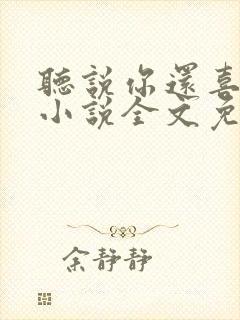 聽說你還喜
小說全文免
余靜靜